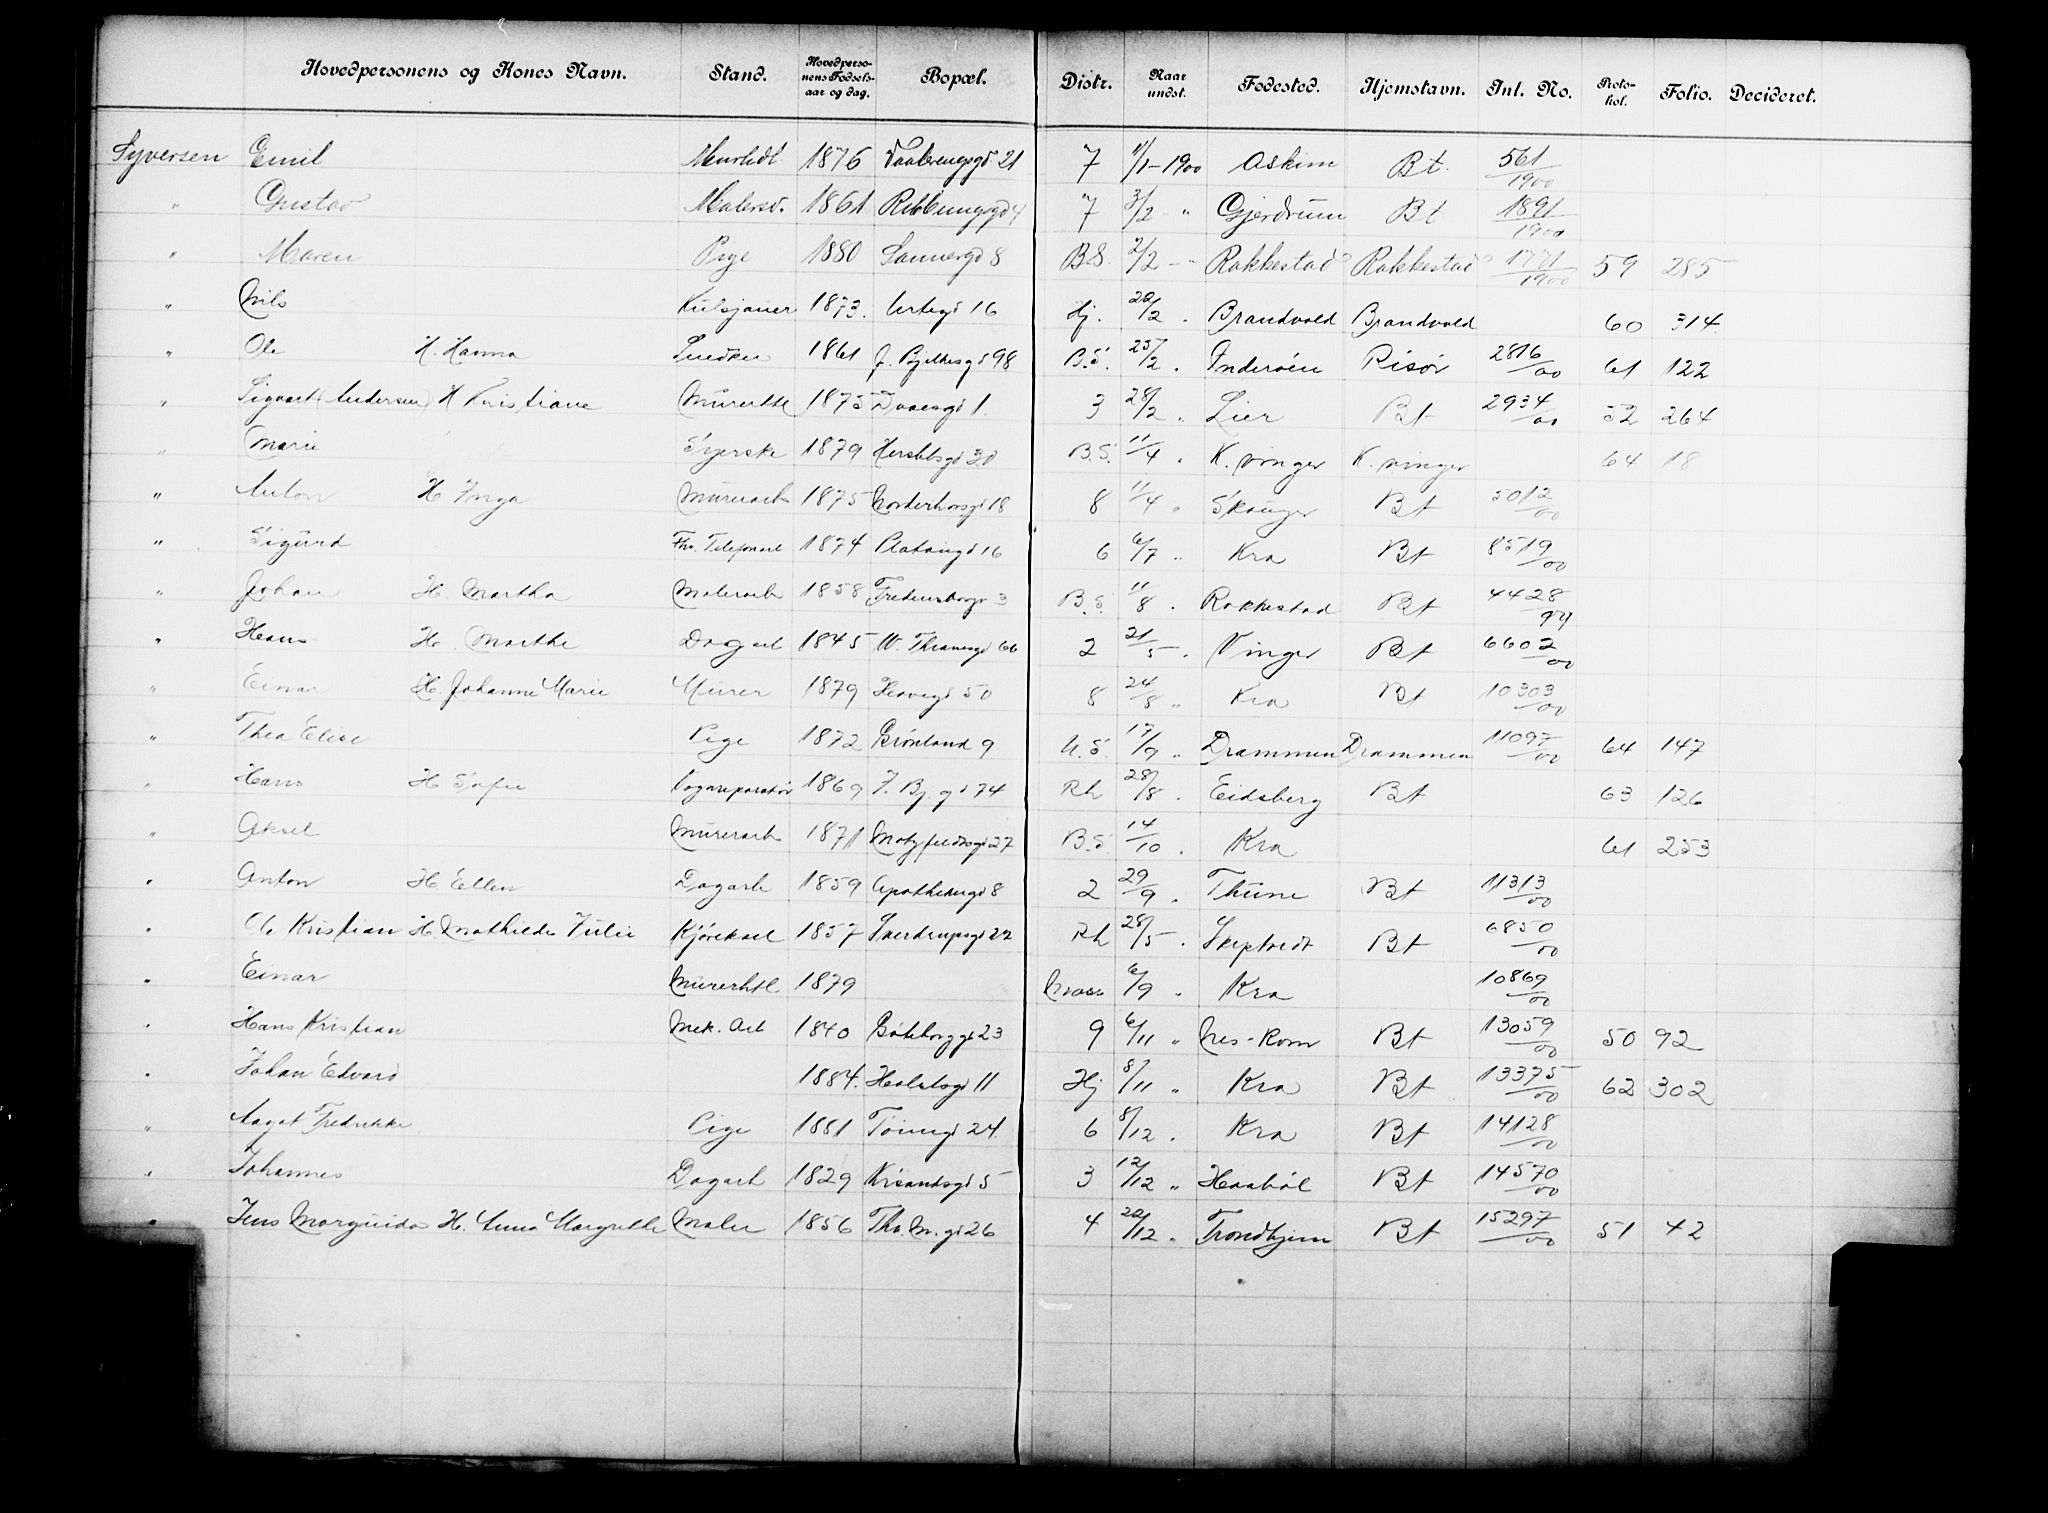 Hovedpersonens og Kones Navn. Stand. Hovedpersonens Fødselsaar og dag. Bopæl. Distr. Naar undst. Fødested. Hjemstavn. Inl. No. Protokol. Folio. Decideret.
Syversen Emil 1876 21 7 /1-1900 Askim Bt. 561/1900
" Gustav Malersv. 1861 4 7 3/2 - " Gjerdrum Bt 1891/1900
" Maren Pige 1880 Sannergd 8 B.S. 2/2 - " Rakkestad Rakkestad 1771/1900 59 285
" Nils Kulsjauer 1873. Urtegd 16 Hj. 20/2 . Brandvold Brandvold 60 314.
" Ole H. Hanna Snedker 1861 J. Bjelkesgd 98 B.S. 25/2 . Inderøen Risør 2816/00 61 122
" Sigvart (Andersen) H Kristiane 1875 1. 3 28/2 . Lier Bt 2934/00 52 264
" Marie Syerske 1879 Herslebsgd 30 B.S. 11/4 . K. vinger K. vinger 64 18
" Anton H Inga Murerarb 1875 Norderhovsgd 18 8 11/4 " Skouger Bt 5012/00
" Sigurd Fhv. Telefonarb 1874 Platousgd 16 6 6/7 " Kra Bt 8519/00
" Johan H. Martha Malerarb 1858 Fredensborgv 3 B.S. 11/8 . Rakkestad Bt 4428/99
" Hans H. Marthe Dagarb 1845 W. Thranesgd 66 2 21/5 . Vinger Bt 6602/00
" Einar H. Johanne Marie Murer 1879 Havegd 50 8 24/8 " Kra Bt 10303/00
" Thea Elise Pige 1872 Grønland 9 U.S. 17/9 " Drammen Drammen 11097/00 64 147
" Hans H Sofie 1869 J. Bj. gd 74 Rh 28/8 . Eidsberg Bt 63 126
" Aksel Murerarb 1871 Motzfeldtsgd 27 B.S. 14/10 . Kra 61 253
" Anton H Ellen Dagarb 1859 Apothekergd 8 2 29/9 . Thune Bt 11313/00
" Ole Kristian H Mathilde Julie Kjørekarl 1857 Sverdrupsgd 22 Rh 28/5 . Skiptvedt Bt 6850/00
" Einar 1879 Moss 6/9 " Kra 10869/00
" Hans Kristian Mek. Arb 1840 Gøteborggd 23 9 6/11 " Nes-Rom Bt 13059/00 50 92
" Johan Edvard 1884. 11 Hj 8/11 " Kra Bt 13375/00 62 302
" Aagot Fredrikke Pige 1881 Tøiengd 24. 6 8/12 . Kra Bt 14128/00
" Johannes Dagarb 1829 Krsandsgd 5 3 12/12 " Haabøl Bt 14570/00
" Jens H. Anna Margrethe Maler 1856 Thv. M. gd 26 4 20/12 " Trondhjem Bt 15297/00 51 42